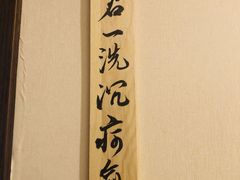 君一洗沉疴